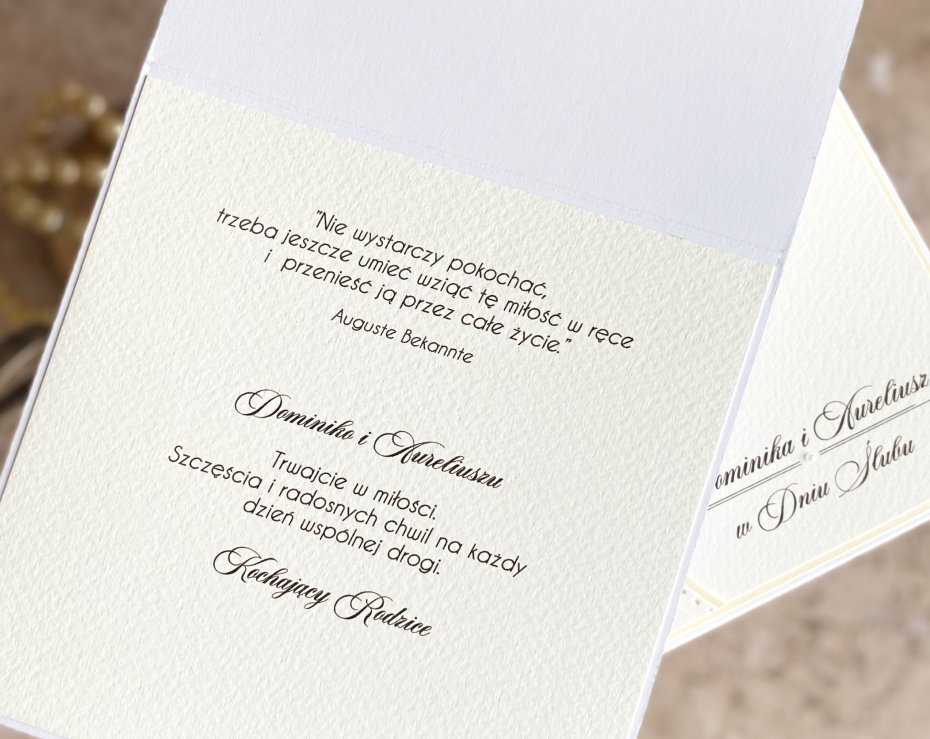 "Nie wystarczy pokochać,
trzeba jeszcze umieć wziąć tę miłość w ręce
i przenieść ją przez całe życie."
Auguste Bekannte
Dominiko i Aureliuszu
Trwajcie w miłości.
Szczęścia i radosnych chwil na każdy
dzień wspólnej drogi.
Kochający Rodzice
ominika i Aureliusz
w Dniu Ślubu